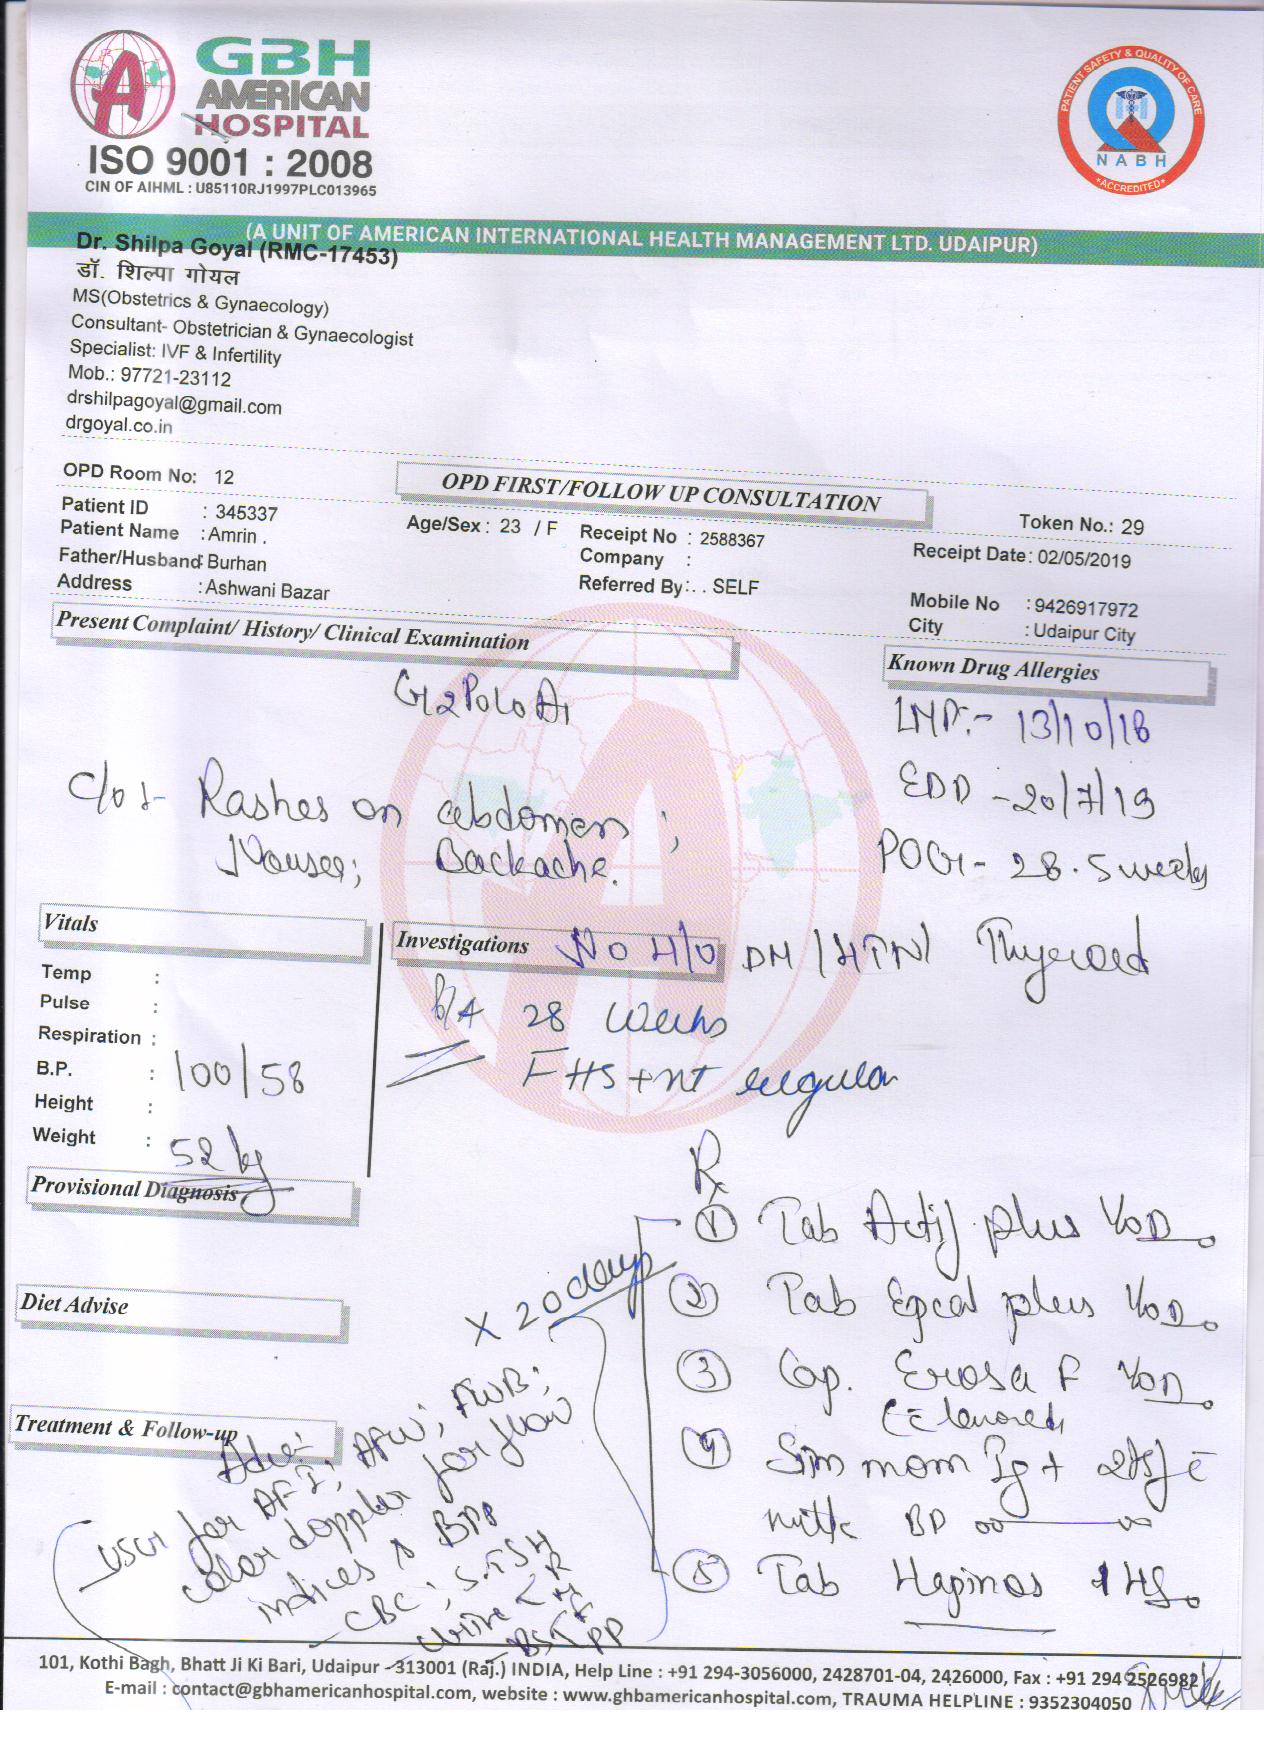 GBH
AMERICAN
HOSPITAL
ISO 9001 : 2008
CIN OF AIHML : U85110RJ1997PLC013965
PATIENT SAFETY & QUALITY OF CARE
NABH
ACCREDITED
(A UNIT OF AMERICAN INTERNATIONAL HEALTH MANAGEMENT LTD. UDAIPUR)
Dr. Shilpa Goyal (RMC-17453)
डॉ. शिल्पा गोयल
MS(Obstetrics & Gynaecology)
Consultant- Obstetrician & Gynaecologist
Specialist: IVF & Infertility
Mob.: 97721-23112
drshilpagoyal@gmail.com
drgoyal.co.in
OPD Room No: 12
OPD FIRST/FOLLOW UP CONSULTATION
Token No.: 29
Patient ID : 345337
Age/Sex : 23 / F
Receipt No : 2588367
Receipt Date : 02/05/2019
Patient Name : Amrin .
Company :
Father/Husband : Burhan
Referred By : . . SELF
Mobile No : 9426917972
Address : Ashwani Bazar
City : Udaipur City
Present Complaint/ History/ Clinical Examination
Known Drug Allergies
G2P0L0A1
LMP:- 13/10/18
EDD - 20/7/19
POG - 28.5 weeks
C/o :- Rashes on abdomen ;
Nousea; Backache.
Vitals
Investigations
No H/O DM / HTN / Thyroid
Temp :
Pulse :
Respiration :
B.P. : 100/58
Height :
Weight : 52 kg
P/A 28 Weeks
FHS + nt regular
Provisional Diagnosis
Diet Advise
Treatment & Follow-up
Rx
① Tab plus 1/OD
② Tab plus 1/OD
③ Cap. F 1/OD
④ mom 2tsf c̄
milk BD
⑤ Tab 1 HS
X 20 days
Adv:-
USG for AFI; ; FWB;
color doppler for flow
indices BPP
- CBC; S.TSH
- Urine R
PP
101, Kothi Bagh, Bhatt Ji Ki Bari, Udaipur - 313001 (Raj.) INDIA, Help Line : +91 294-3056000, 2428701-04, 2426000, Fax : +91 294 2526982
E-mail : contact@gbhamericanhospital.com, website : www.ghbamericanhospital.com, TRAUMA HELPLINE : 9352304050